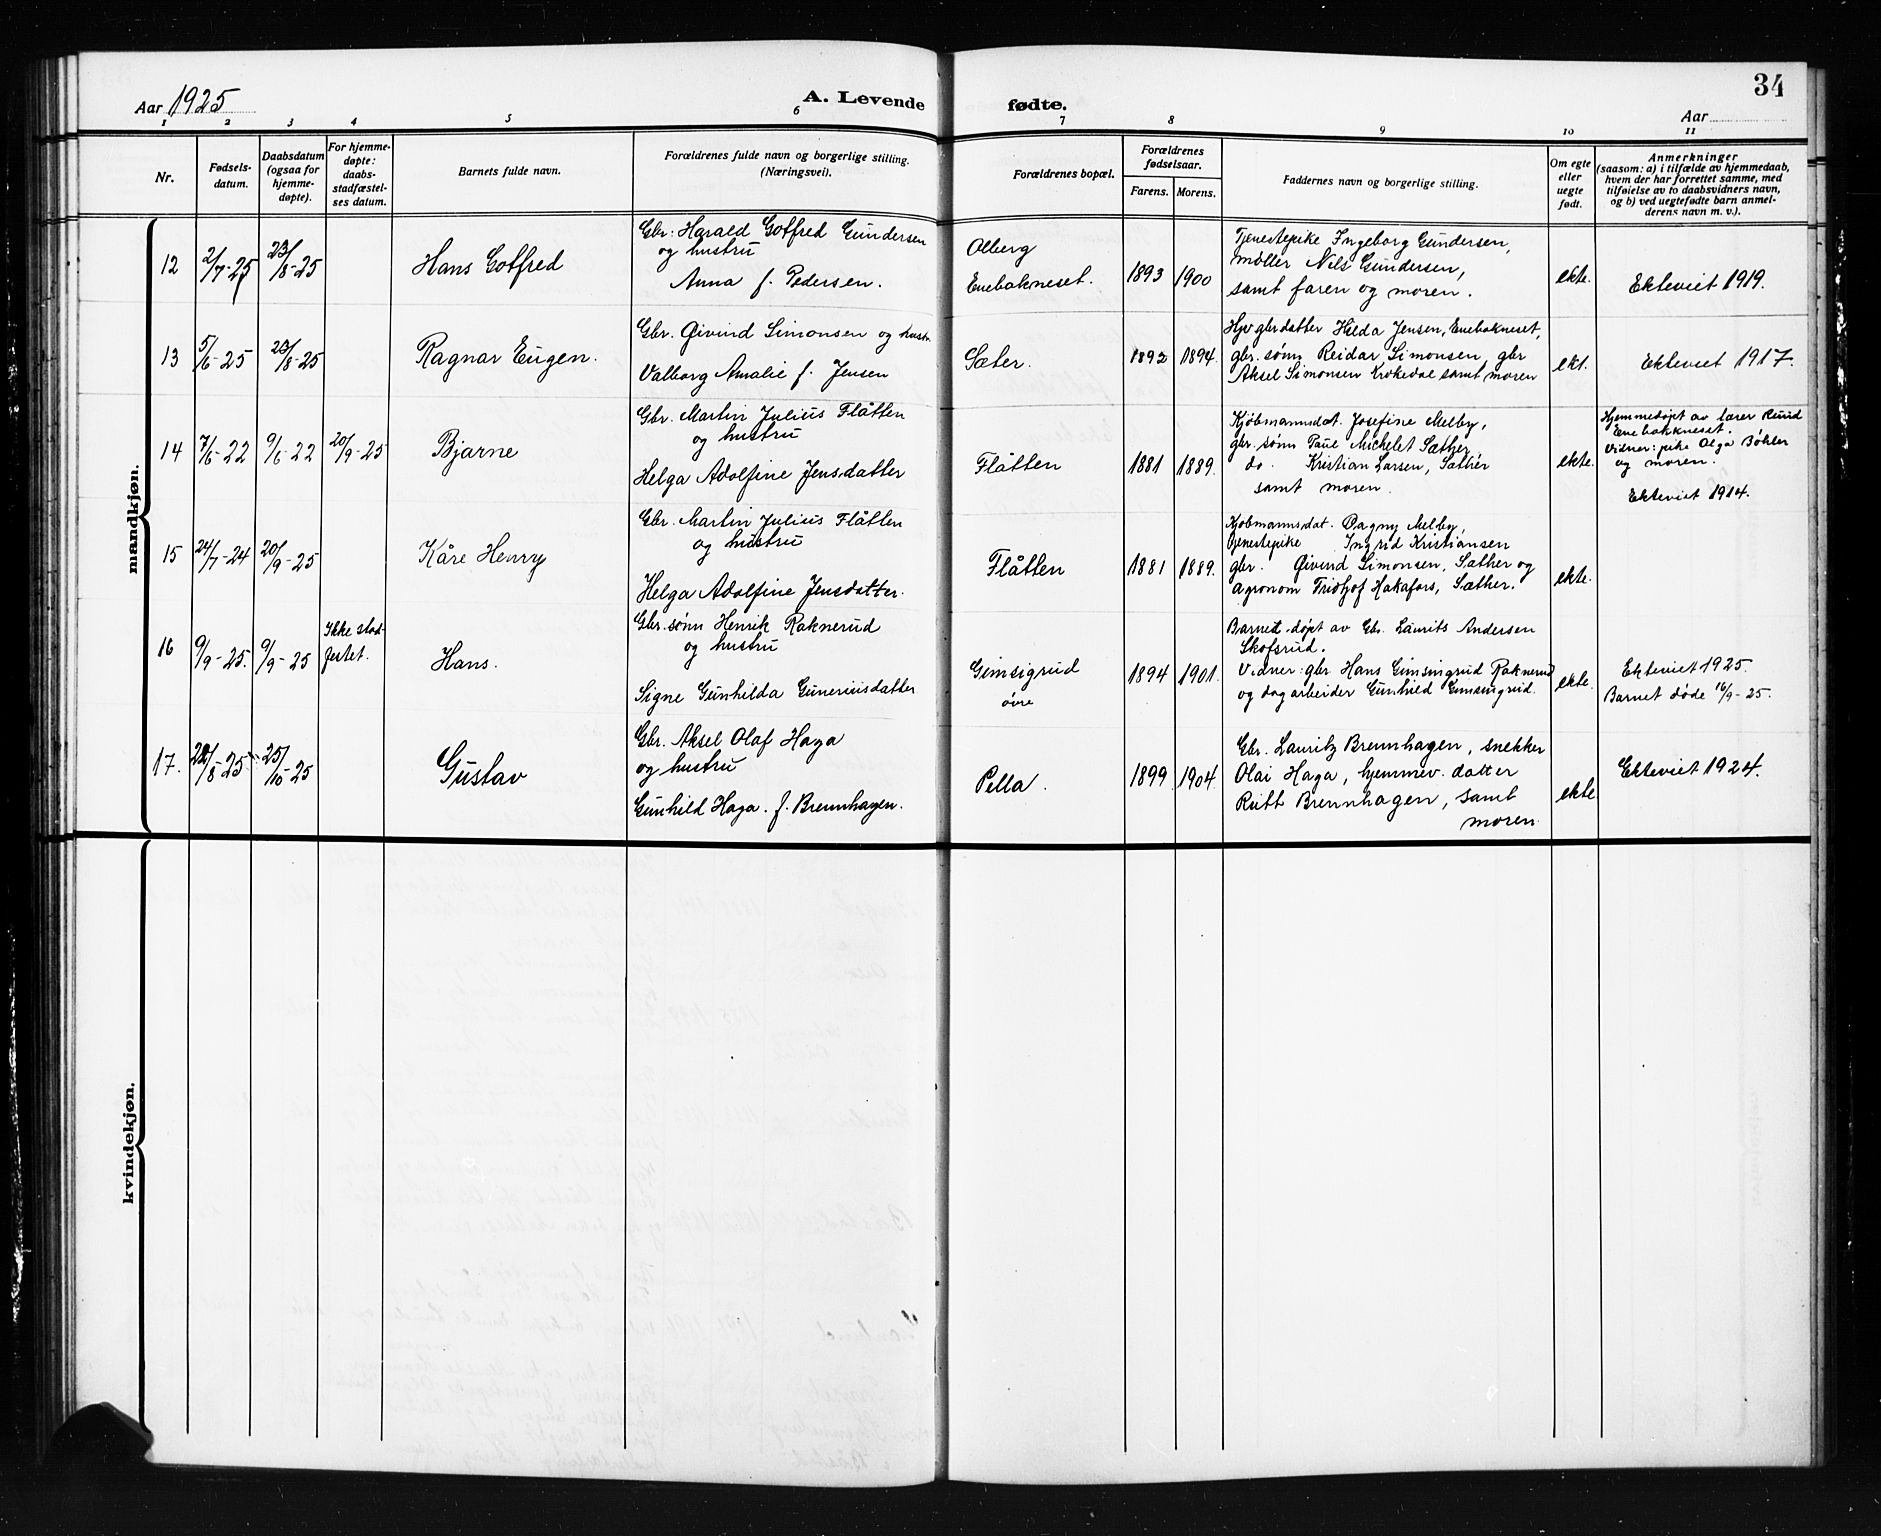 34
Aar 1925
A. Levende fødte.
Aar
1 2 3 4 5 6 7 8 9 10 11
Nr.
Fødsels-
datum.
Daabsdatum
(ogsaa for
hjemme-
døpte).
For hjemme-
døpte:
daabs-
stadfæstel-
ses datum.
Barnets fulde navn.
Forældrenes fulde navn og borgerlige stilling.
(Næringsvei).
Forældrenes bopæl.
Forældrenes
fødselsaar.
Farens. Morens.
Faddernes navn og borgerlige stilling.
Om egte
eller
uegte
født.
Anmerkninger
(saasom: a) i tilfælde av hjemmedaab,
hvem der har forrettet samme, med
tilføielse av to daabsvidners navn,
og b) ved uegtefødte barn anmel-
derens navn m. v.).
mandkjøn.
12
2/7-25
23/8-25
Hans Gotfred
Gbr. Harald Gotfred Gundersen
og hustru
Anna f. Pedersen.
Olberg
Enebakneset.
1893 1900
Tjenestepike Ingeborg Gundersen,
møller Nils Gundersen,
samt faren og moren.
ekte.
Ekteviet 1919.
13
5/6-25
23/8-25
Ragnar Eugen.
Gbr. Øivind Simonsen og hustr.
Valborg Amalie f. Jensen
Sæter.
1892 1894.
Hjv gbrdatter Hilda Jensen, Enebakneset,
gbr. sønn Reidar Simonsen, gbr
Aksel Simonsen Krokedal samt moren
ekt.
Ekteviet 1917.
14
7/6-22
9/6-22
20/9-25
Bjarne
Gbr. Martin Julius Flåtten
og hustru
Helga Adolfine Jensdatter
Flåtten
1881 1889.
Kjøbmannsdat. Josefine Melby,
gbr. sønn Paul Michelet Sæther,
do. Kristian Larsen, Sæther
samt moren.
ekte.
Hjemmedøpt av lærer Ruud
Enebakkneset.
Vidner: pike Olga Bøhler
og moren.
Ekteviet 1914.
15
24/7-24
20/9-25
Kåre Henry
Gbr. Martin Julius Flåtten
og hustru
Helga Adolfine Jensdatter.
Flåtten
1881 1889.
Kjøbmannsdat. Dagny Melby,
tjenestepike Ingrid Kristiansen
gbr. Øivind Simonsen, Sæther og
agronom Tridtjof Hakafors, Sæther.
ekte.
16
9/9-25.
9/9-25
Ikke stad-
festet.
Hans.
Gbr. sønn Henrik Raknerud
og hustru
Signe Gunhilda Guneriusdatter
Gimsigrud
øvre
1894 1901.
Barnet døpt av Gbr. Laurits Andersen
Skofsrud.
Vidner: gbr. Hans Gimsingrud Raknerud
og dagarbeider Gunhild Gimsingrud.
ekte.
Ekteviet 1925.
Barnet døde 16/9-25.
17.
22/8-25
25/10-25
Gustav
Gbr. Aksel Olaf Haga
og hustru
Gunhild Haga. f. Brennhagen.
Pella.
1899 1904.
Gbr. Lauritz Brennhagen, snekker
Olai Haga, hjemmev. datter
Rutt Brennhagen, samt
moren
ekte
Ekteviet 1924.
kvindekjøn.